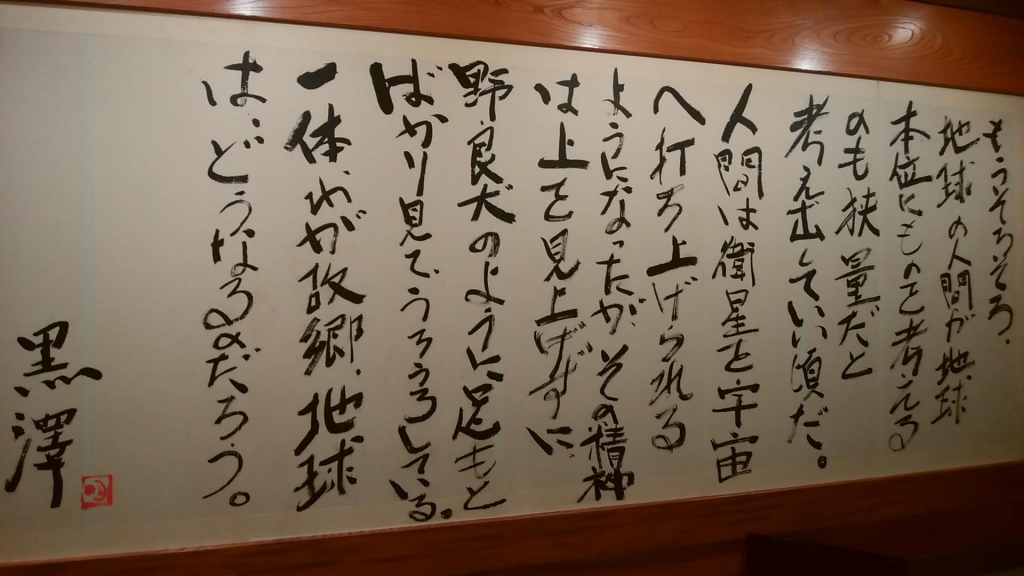 もうそろそろ、
地球の人間が地球
本位にものを考える
のも狭量だと
考え出していい頃だ。
人間は衛星を宇宙
へ打ち上げられる
ようになったが、その精神
は上を見上げずに
野良犬のように足もと
ばかり見てうろうろしている。
一体、わが故郷、地球
は、どうなるのだろう。
黒澤